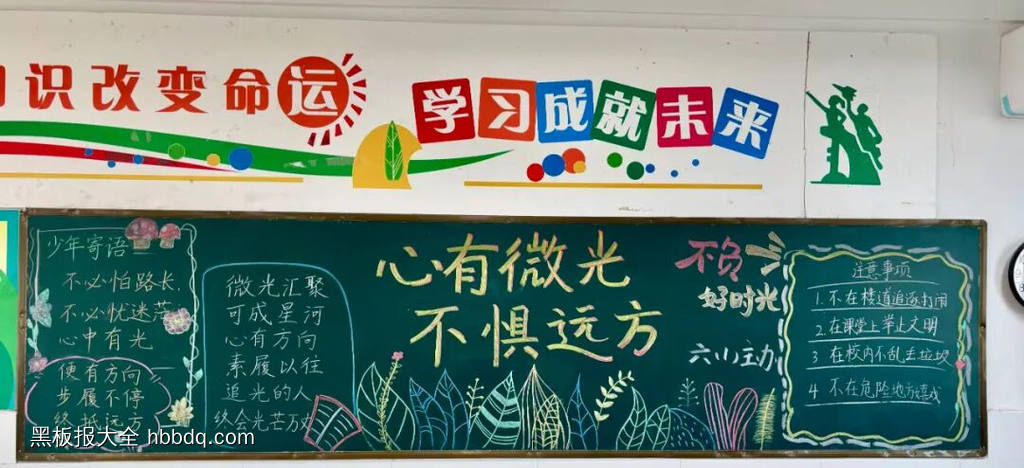 识改变命运
学习成就未来
少年寄语
不必怕路长
不必忧迷茫
心中有光
便有方向
步履不停
终抵远方
微光汇聚
可成星河
心有方向
素履以往
追光的人
终会光芒万丈
心有微光
不惧远方
不负
好时光
六(1)主办
注意事项
1. 不在楼道追逐打闹
2. 在课堂上举止文明
3 在校内不乱丢垃圾
4 不在危险地方嬉戏
黑板报大全 hbbdq.com